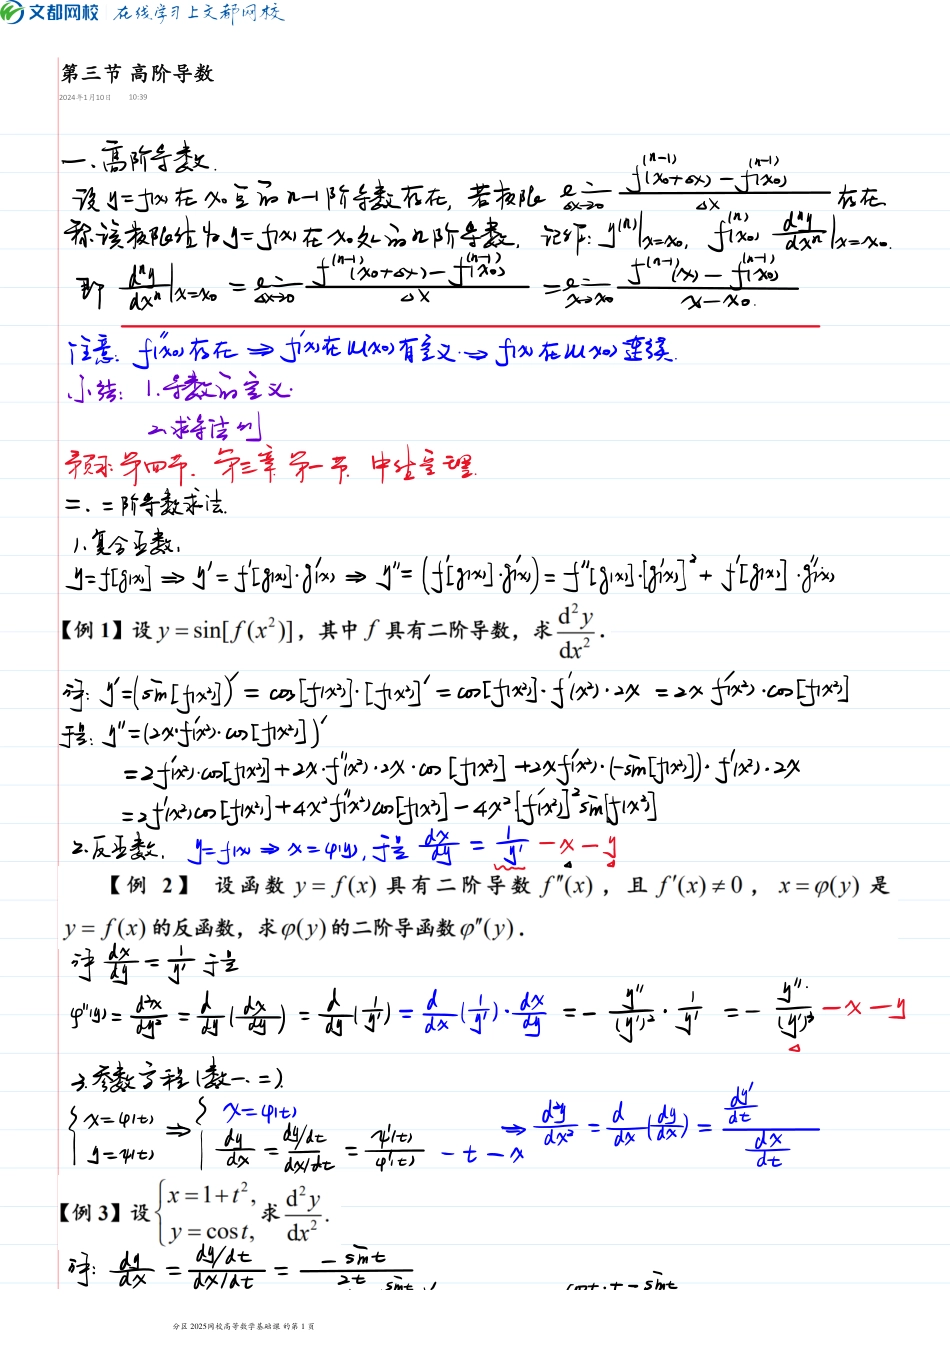 文都网校 在线学习上文都网校
第三节 高阶导数
2024年1月10日 10:39
一、高阶导数.
设y=f(x)在x₀点的n-1阶导数存在, 若极限 lim_{Δx→0} [f^{(n-1)}(x₀+Δx) - f^{(n-1)}(x₀)]/Δx 存在
称该极限值为y=f(x)在x₀处的n阶导数, 记作: y^{(n)}|_{x=x₀}, f^{(n)}(x₀) d^n y/dx^n|_{x=x₀}.
即 d^n y/dx^n|_{x=x₀} = lim_{Δx→0} [f^{(n-1)}(x₀+Δx) - f^{(n-1)}(x₀)]/Δx = lim_{x→x₀} [f^{(n-1)}(x) - f^{(n-1)}(x₀)]/(x-x₀).
注意: f''(x₀)存在 ⇒ f'(x)在U(x₀)有定义 ⇒ f(x)在U(x₀)连续.
小结: 1.导数的定义.
2.求导法则
预示: 第四节、第三章 第一节 中值定理.
二、二阶导数求法.
1.复合函数:
y=f[g(x)] ⇒ y'=f'[g(x)]·g'(x) ⇒ y''=(f'[g(x)]·g'(x))'=f''[g(x)]·[g'(x)]²+f'[g(x)]·g''(x)
【例 1】设 y = sin[f(x²)], 其中 f 具有二阶导数, 求 d²y/dx².
解: y'=(sin[f(x²)])' = cos[f(x²)]·[f(x²)]' = cos[f(x²)]·f'(x²)·2x = 2x f'(x²)·cos[f(x²)]
于是: y''=(2x·f'(x²)·cos[f(x²)])'
=2f'(x²)·cos[f(x²)]+2x·f''(x²)·2x·cos[f(x²)]+2xf'(x²)·(-sin[f(x²)])·f'(x²)·2x
=2f'(x²)cos[f(x²)]+4x²f''(x²)cos[f(x²)]-4x²[f'(x²)]²sin[f(x²)]
2.反函数. y=f(x) ⇒ x=φ(y), 于是 dx/dy = 1/y' - x - y
【例 2】 设函数 y = f(x) 具有二阶导数 f''(x), 且 f'(x) ≠ 0, x = φ(y) 是
y = f(x) 的反函数, 求 φ(y) 的二阶导函数 φ''(y).
解 dx/dy = 1/y' 于是
φ''(y)= d²x/dy² = d/dy(dx/dy) = d/dy(1/y') = d/dx(1/y')·dx/dy = - y''/(y')²·1/y' = - y''/(y')³ - x - y
3.参数方程(数一、二).
{x=φ(t) y=ψ(t) ⇒ {x=φ(t) dy/dx = (dy/dt)/(dx/dt) = ψ'(t)/φ'(t) - t - x ⇒ d²y/dx² = d/dx(dy/dx) = (dy'/dt)/(dx/dt)
【例 3】设 {x = 1+t², y = cos t, 求 d²y/dx².
解: dy/dx = (dy/dt)/(dx/dt) = -sint/2t
分区 2025网校高等数学基础课 的第 1 页